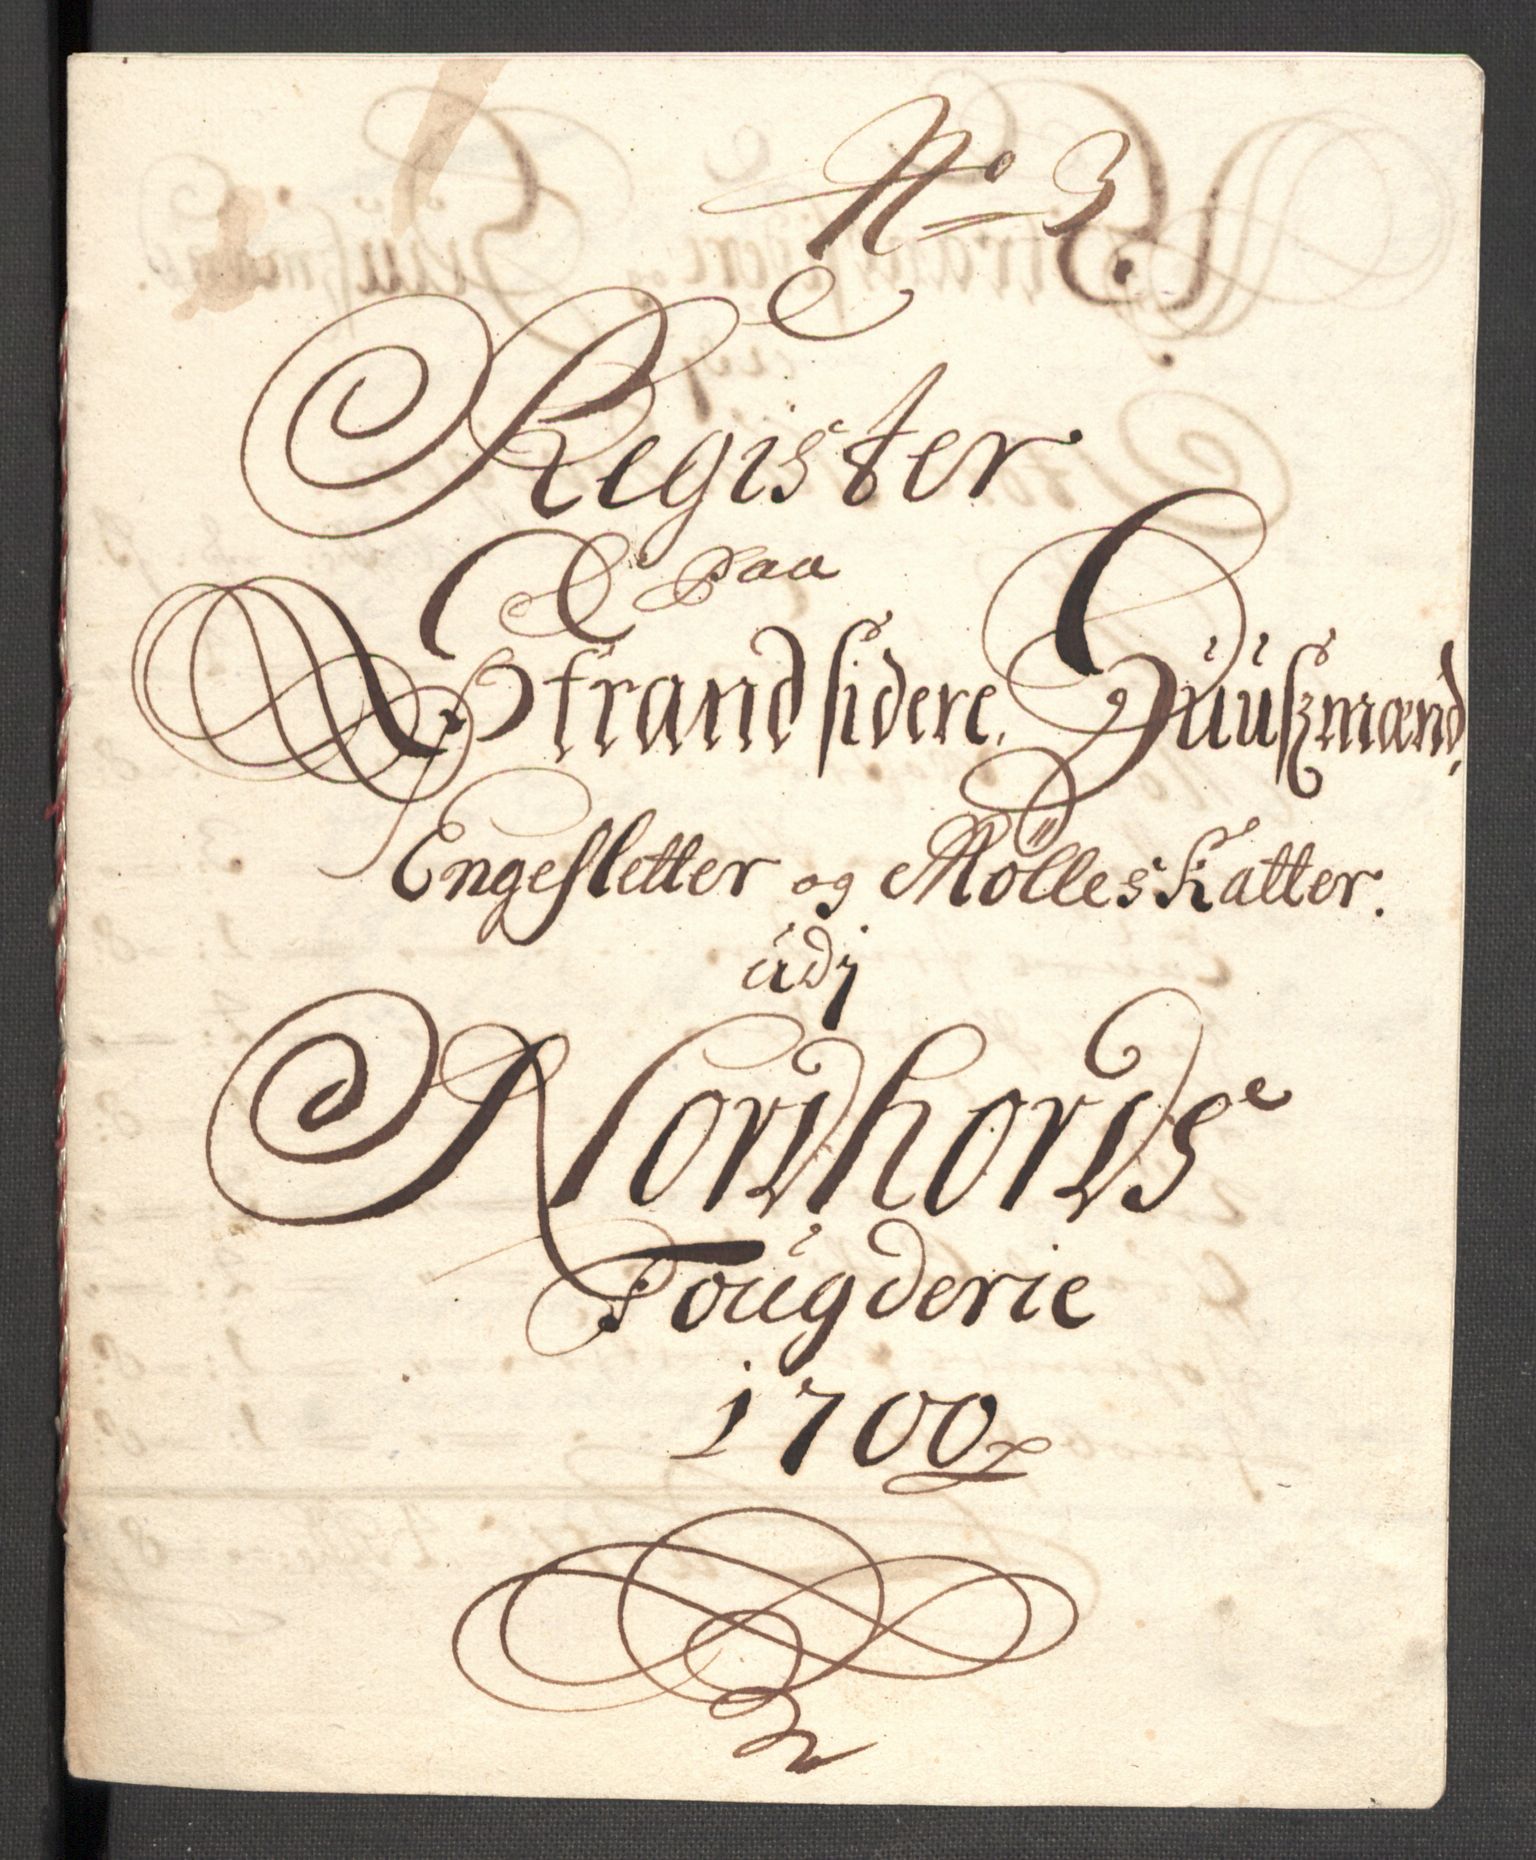 No 3
Register
paa
Strandsidere, Huusmænd,
Engesletter og Mölleskatter.
udj
Nordhords
Fougderie
1700